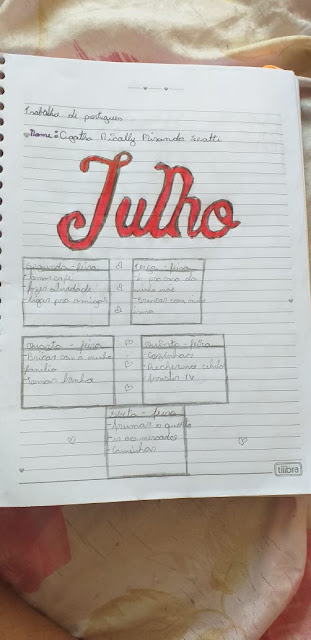 Trabalho de portugues
Nome: Agatha Nicolly Miranda
Julho
Segunda-feira
-tomar café
-fazer atividade
-ligar pra amigos
Terça-feira
-ir pra casa da
minha mãe
-Brincar com meu
Quarta-feira
-Bricar com a minha
familia
-Tomar banho
Quinta-feira
-Cozinhar
-Assistir TV
Sexta-feira
-Arrumar o quarto
-ir ao mercado
-Caminhar
tilibra